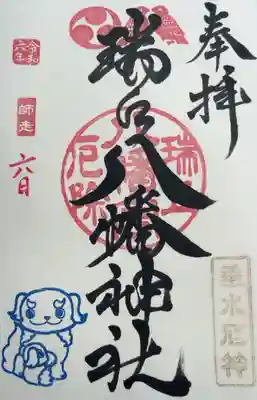 奉拝
瑞丘八幡神社
瑞丘
厄除
垂水厄神
令和
六年
師走
六日